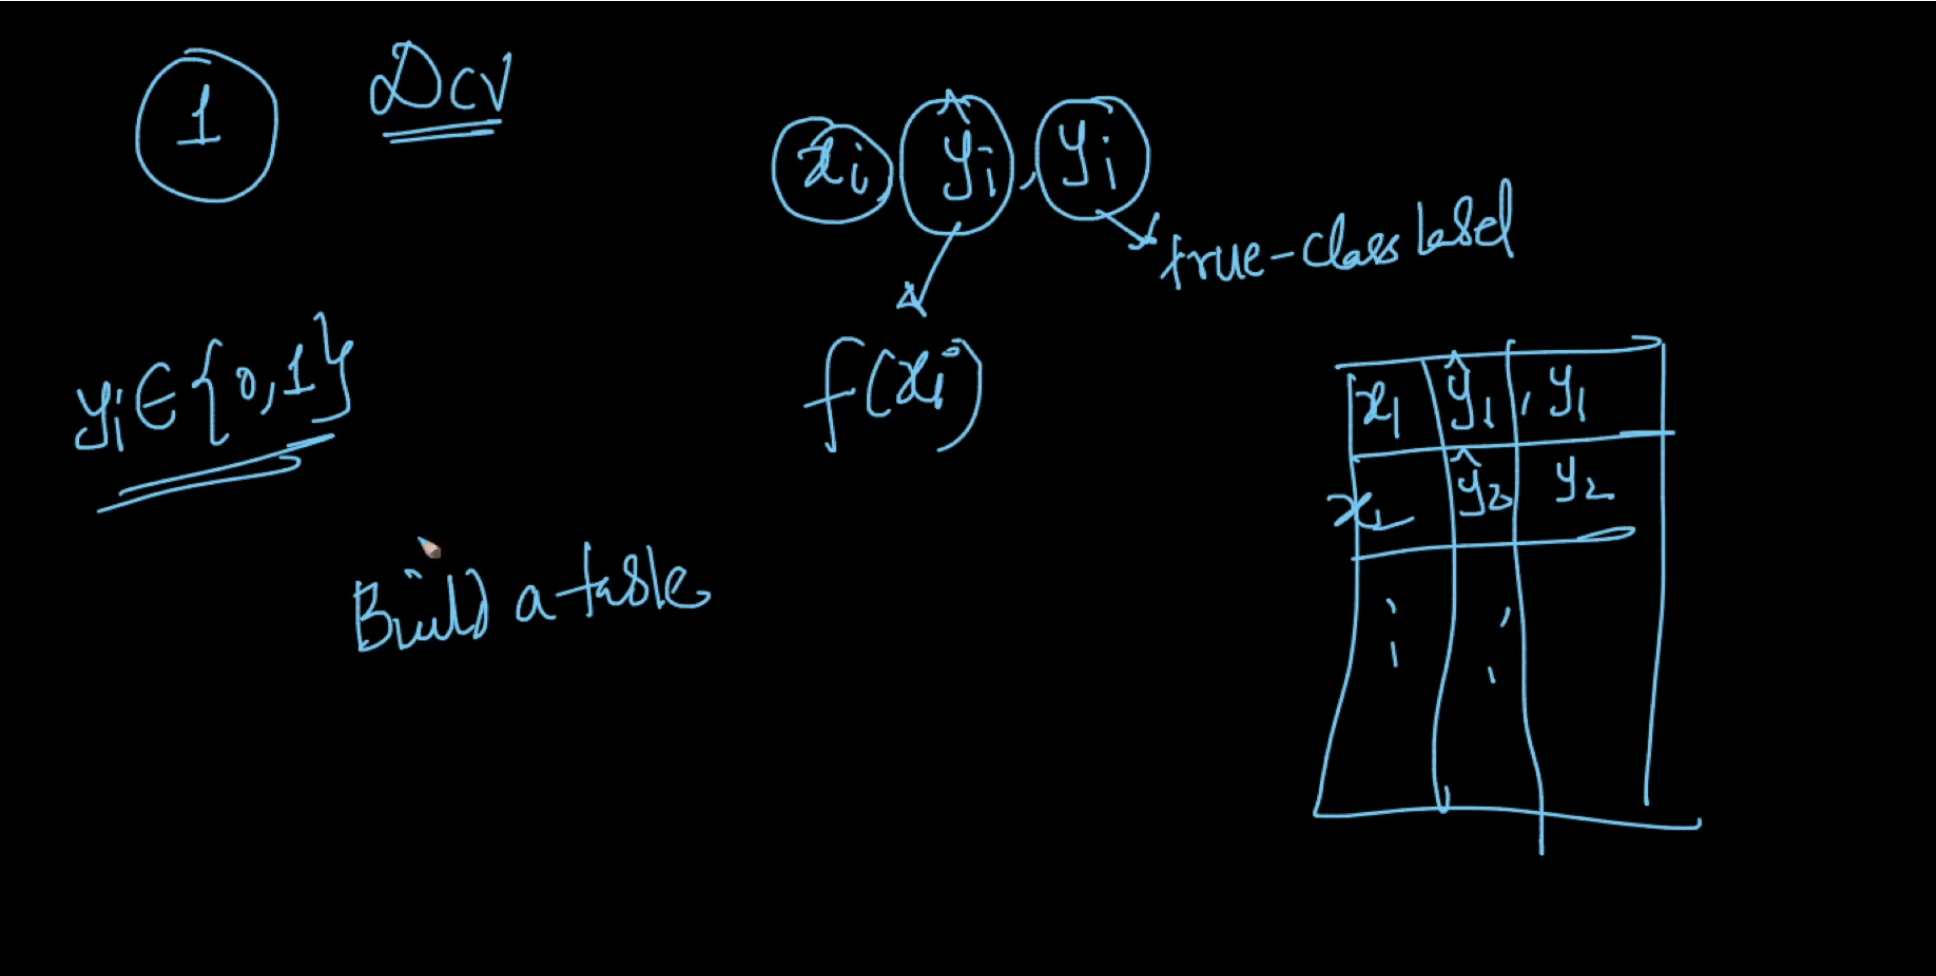 1 DCV
xi ŷi, yi
true-class label
f(xi)
yi ∈ {0,1}
Build a table
x1 ŷ1, y1
x2 ŷ2 y2